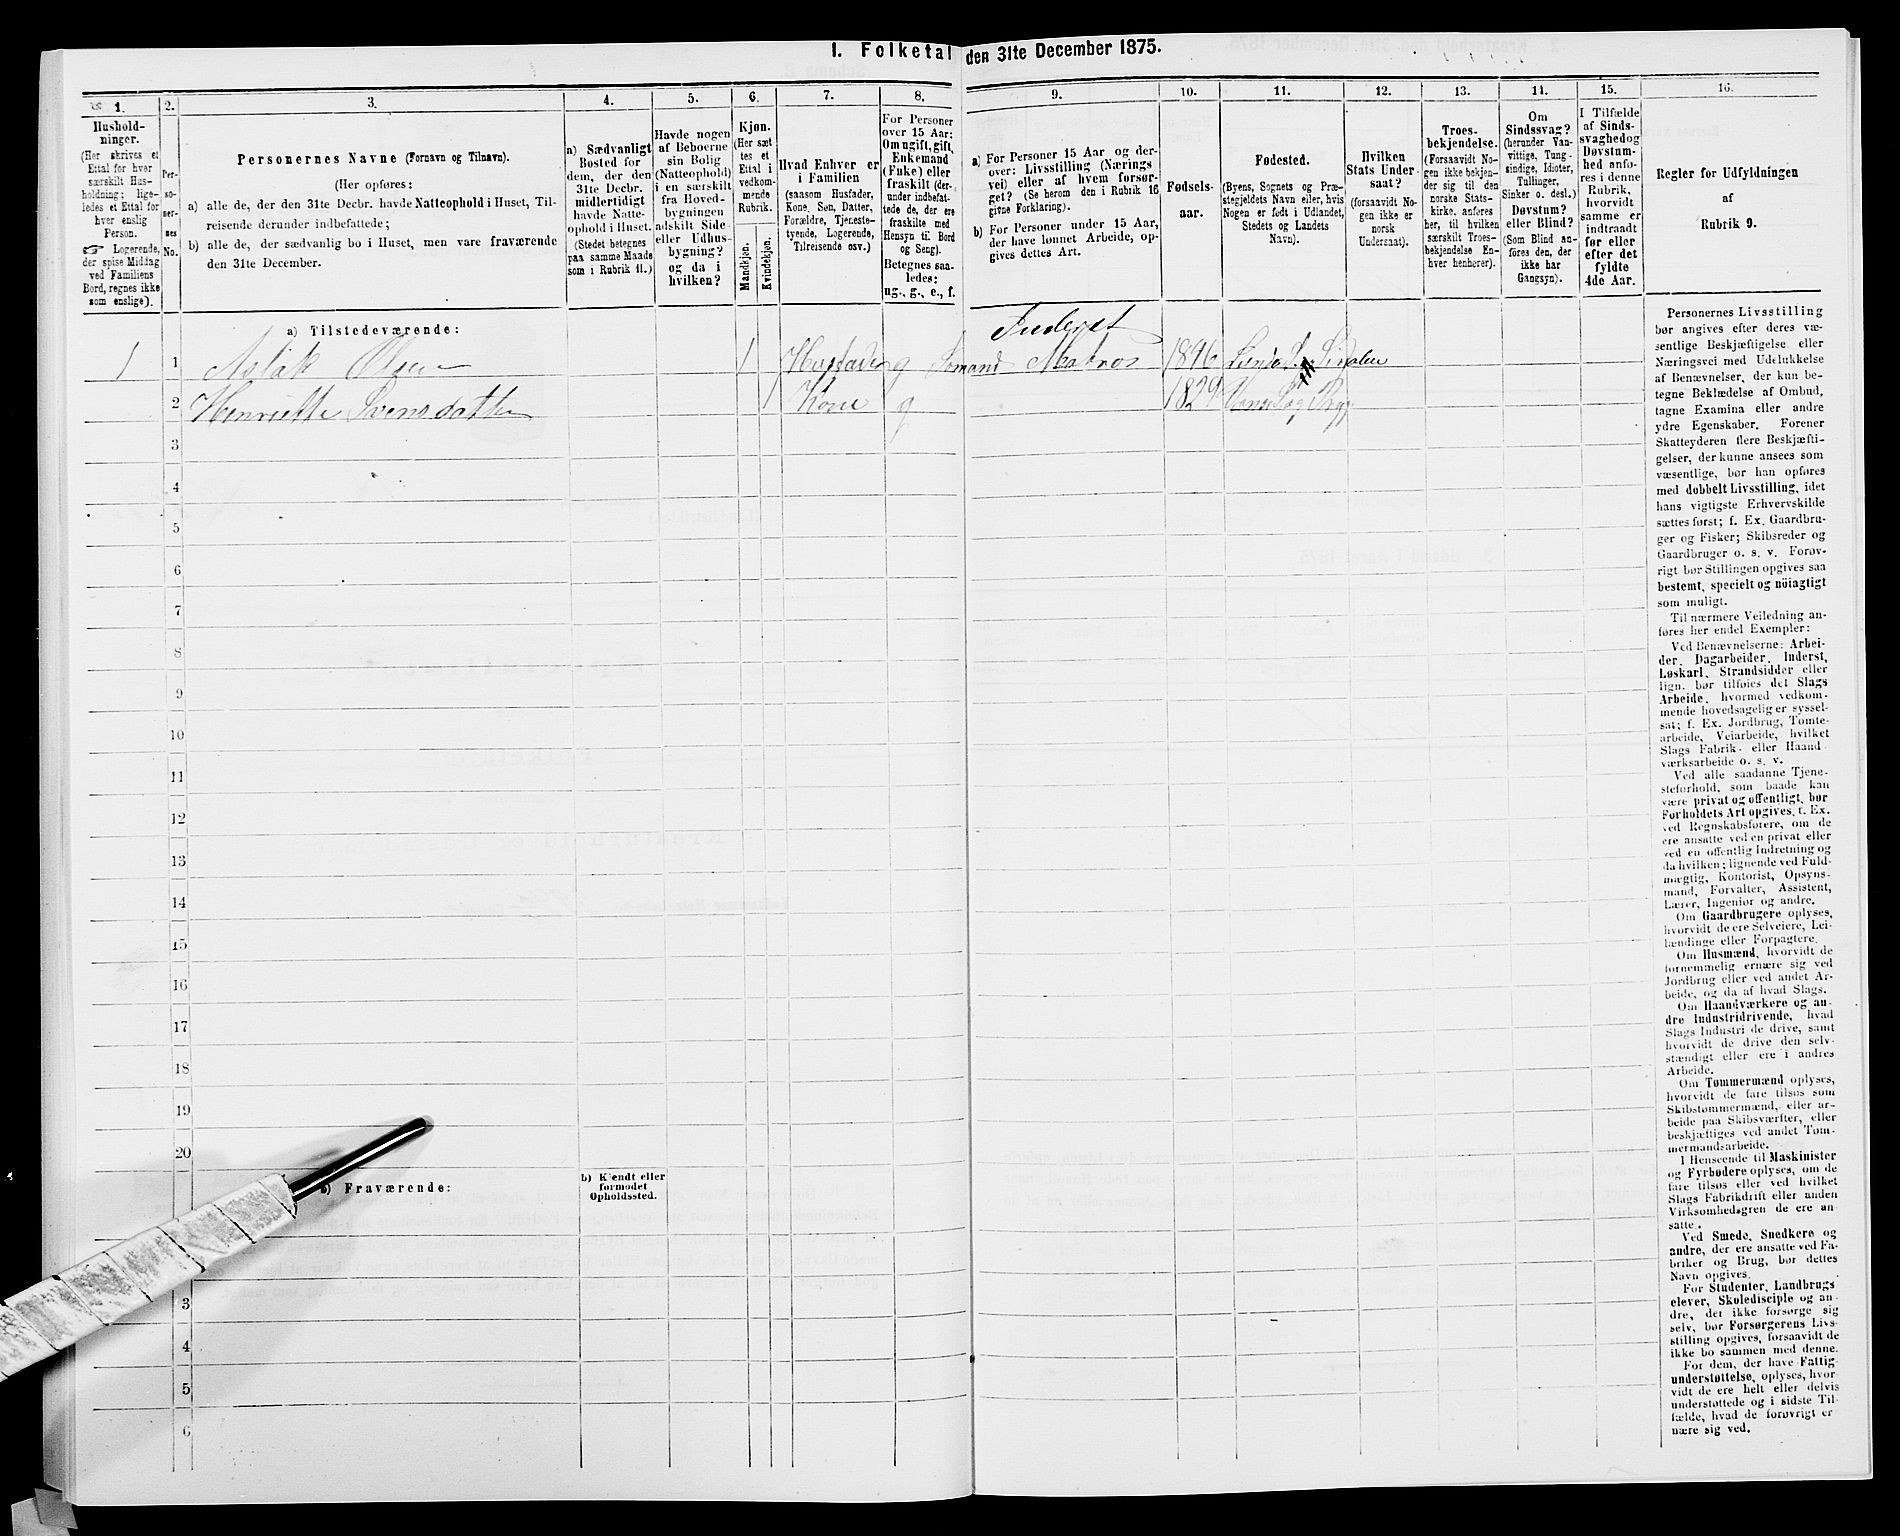 1. Folketal den 31te December 1875.
1.
Hushold-
ninger.
(Her skrives et
Ettal for hver
særskilt Hus-
holdning; lige-
ledes et Ettal for
hver enslig
Person.
☞ Logerende,
der spise Middag
ved Familiens
Bord, regnes ikke
som enslige).
2.
Per-
so-
ner-
nes
No.
3.
Personernes Navne (Fornavn og Tilnavn).
(Her opføres:
a) alle de, der den 31te Decbr. havde Natteophold i Huset, Til-
reisende derunder indbefattede;
b) alle de, der sædvanlig bo i Huset, men vare fraværende
den 31te December.
4.
a) Sædvanligt
Bosted for
dem, der den
31te Decbr.
midlertidigt
havde Natte-
ophold i Huset.
(Stedet betegnes
paa samme Maade
som i Rubrik 11.)
5.
Havde nogen
af Beboerne
sin Bolig
(Natteophold)
i en særskilt
fra Hoved-
bygningen
adskilt Side-
eller Udhus-
bygning?
og da i
hvilken?
6.
Kjøn.
(Her sæt-
tes et
Ettal i
vedkom-
mende
Rubrik.
Mandkjøn.
Kvindekjøn.
7.
Hvad Enhver er
i Familien
(saasom Husfader,
Kone, Søn, Datter,
Forældre, Tjeneste-
tyende, Logerende,
Tilreisende osv.)
8.
For Personer
over 15 Aar:
Om ugift, gift,
Enkemand
(Fuke) eller
fraskilt (der-
under indbefat-
tede de, der ere
fraskilte med
Hensyn til Bord
og Seng).
Betegnes saa-
ledes:
ug., g., e., f.
9.
a) For Personer 15 Aar og der-
over: Livsstilling (Nærings-
vei) eller af hvem forsør-
get? (Se herom den i Rubrik 16
givne Forklaring).
b) For Personer under 15 Aar,
der have lønnet Arbeide, op-
gives dettes Art.
10.
Fødsels-
aar.
11.
Fødested.
(Byens, Sognets og Præ-
stegjeldets Navn eller, hvis
Nogen er født i Udlandet,
Stedets og Landets
Navn).
12.
Hvilken
Stats Under-
saat?
(forsaavidt No-
gen ikke er
norsk
Undersaat).
13.
Troes-
bekjendelse.
(Forsaavidt No-
gen ikke bekjen-
der sig til den
norske Stats-
kirke, anføres
her, til hvilken
særskilt Troes-
bekjendelse En-
hver henhører).
14.
Om
Sindssvag?
(herunder Van-
vittige, Tung-
sindige, Idioter,
Tullinger,
Sinker o. desl.)
Døvstum?
eller Blind?
(Som Blind an-
føres den, der
ikke har
Gangsyn).
15.
I Tilfælde
af Sinds-
svaghedog
Døvstum-
hed anfø-
res i denne
Rubrik,
hvorvidt
samme er
indtraadt
før eller
efter det
fyldte
4de Aar.
16.
Regler for Udfyldningen
af
Rubrik 9.
a) Tilstedeværende:
Inderst
1 1 Aslak Olsen 1 Husfader g Sømand Matros 1846
2 Henriette Svensdatter 1 Kone g 1829
3
4
5
6
7
8
9
10
11
12
13
14
15
16
17
18
19
20
b) Fraværende:
b) Kjendt eller
formodet
Opholdssted.
3
4
5
6
Personernes Livsstilling
bør angives efter deres væ-
sentlige Beskjæftigelse eller
Næringsvei med Udelukkelse
af Benævnelser, der kun be-
tegne Beklædelse af Ombud,
tagne Examina eller andre
ydre Egenskaber. Forener
Skatteyderen flere Beskjæfti-
gelser, der kunne ansees som
væsentlige, bør han opføres
med dobbelt Livsstilling, idet
hans vigtigste Erhvervskilde
sættes først; f. Ex. Gaardbru-
ger og Fisker; Skibsreder og
Gaardbruger o. s. v. Forøv-
rigt bør Stillingen opgives saa
bestemt, specielt og nöiagtigt
som muligt.
Til nærmere Veiledning an-
føres her endel Exempler:
Ved Benævnelserne: Arbei-
der, Dagarbeider, Inderst,
Løskarl, Strandsidder eller
lign. bør tilføies det Slags
Arbeide, hvormed vedkom-
mende hovedsagelig er syssel-
sat; f. Ex. Jordbrug, Tomte-
arbeide, Veiarbeide, hvilket
Slags Fabrik- eller Haand-
værksarbeide o. s. v.
Ved alle saadanne Tjene-
steforhold, som baade kan
være privat og offentligt, bør
Forholdets Art opgives, f. Ex.
ved Regnskabsførere, om de
ere ansatte ved en privat eller
ved en offentlig Indretning og
da hvilken; lignende ved Fuld-
mægtig, Kontorist, Opsyns-
mand, Forvalter, Assistent,
Lærer, Ingeniør og andre.
Om Gaardbrugere oplyses,
hvorvidt de ere Selveiere, Lei-
lændinge eller Forpagtere.
Om Husmænd, hvorvidt de
fornemmelig ernære sig ved
Jordbrug eller ved andet Ar-
beide, og da af hvad Slags.
Om Haandværkere og an-
dre Industridrivende, hvad
Slags Industri de drive, samt
hvorvidt de drive den selv-
stændigt eller ere i andres
Arbeide.
Om Tømmermænd oplyses,
hvorvidt de fare tilsøs som
Skibstømmermænd, eller ar-
beide paa Skibsværfter, eller
beskjæftiges ved andet Tøm-
mermandsarbeide.
I Henseende til Maskinister
og Fyrbødere oplyses, om de
fare tilsøs eller ved hvilket
Slags Fabrikdrift eller anden
Virksomhedsgren de ere an-
satte.
Ved Smede, Snedkere og
andre, der ere ansatte ved Fa-
briker og Brug, bør dettes
Navn opgives.
For Studenter, Landbrugs-
elever, Skoledisciple og an-
dre, det ikke forsørge sig
selv, bør Forsørgerens Livs-
stilling opgives, forsaavidt de
ikke bo sammen med denne.
For dem, der have Fattig-
understøttelse, oplyses, hvor-
vidt de ere helt eller delvis
understøttede og i sidste Til-
fælde, hvad de forøvrigt er-
nære sig ved.